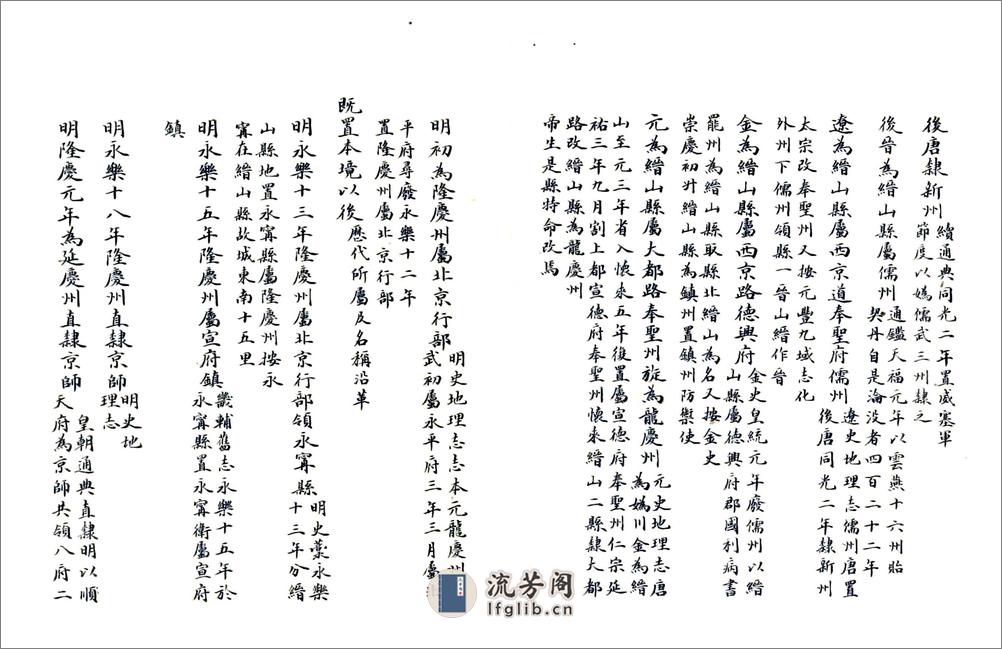 後唐隸新州
續通典同光二年置威塞軍
節度以媯儒武三州隸之
後晉為縉山縣屬儒州
通鑑天福元年以雲燕十六州貽
契丹自是淪没者四百二十二年
遼為縉山縣屬西京道奉聖府儒州
遼史地理志儒州唐置
後唐同光二年隸新州
太宗改奉聖州又按元豐九域志化
外州下儒州領縣一晉山縉作晉
金為縉山縣屬西京路德興府
金史皇統元年廢儒州以縉
山縣屬德興府郡國利病書
罷州為縉山縣取縣北縉山為名又按金史
崇慶初升縉山縣為鎮州置鎮州防禦使
元為縉山縣屬大都路奉聖州旋為龍慶州
元史地理志唐
為媯川金為縉
山至元三年省入懷來五年復置屬宣德府奉聖州仁宗延
祐三年九月割上都宣德府奉聖州懷來縉山二縣隸大都
路改縉山縣為龍慶州
帝生是縣特命改馬
明初為隆慶州屬北京行部
明史地理志志本元龍慶州
武初屬永平府三年三月屬
平府尋廢永樂十二年
置隆慶州屬北京行部
既置本境以後歷代所屬及名稱沿革
明永樂十三年隆慶州屬北京行部領永寗縣
明史藁永樂
十三年分縉
山縣地置永寗縣屬隆慶州按永
寗在縉山縣故城東南十五里
明永樂十五年隆慶州屬宣府鎮
畿輔舊志永樂十五年於
永寗縣置永寗衛屬宣府
鎮
明永樂十八年隆慶州直隸京師
明史地
理志
明隆慶元年為延慶州直隸京師
皇朝通典直隸明以順
天府為京師共領八府二
流芳阁
lfglib.cn